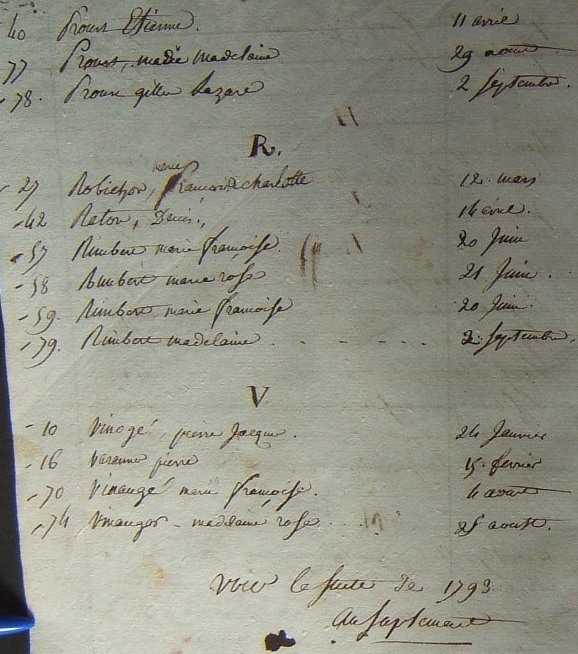 40 Proust Etienne. 11 avril
77 Proust, marie madelaine 29 aoust
78. Proust gilles Lazare 2 Septembre.
R.
marie
27 Robichon, francoise charlotte 12. mars
42 Raton, Denis., 14 avril.
57 Rimbert marie francoise. 20 Juin
58 Rimbert marie rose 21 Juin.
59. Rimbert marie francoise 20 Juin.
79. Rimbert madelaine . - - - - . 2. Septembre.
V
10 Vinogé, pierre Jacques. 24 Janvier
16 Varanne pierre 15. fevrier
70 Vinaugé marie francoise. 4 aoust
74 Vinauger - madelaine rose . . . 25 aoust.
Voir la suite de 1793
au suplement